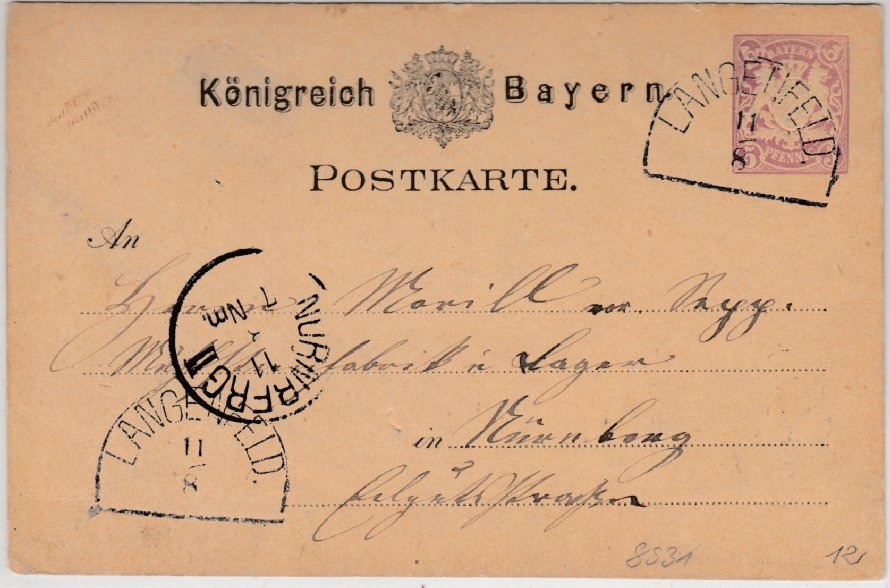 Königreich Bayern.
BAYERN
5 5
PFENNIG
LANGENFELD.
11
8
POSTKARTE.
An
Herrn Morill vor. Sepp.
fabrik u Lager
in Nürnberg
NÜRNBERG II
11
7 Nm.
LANGENFELD.
11
8
8531
12